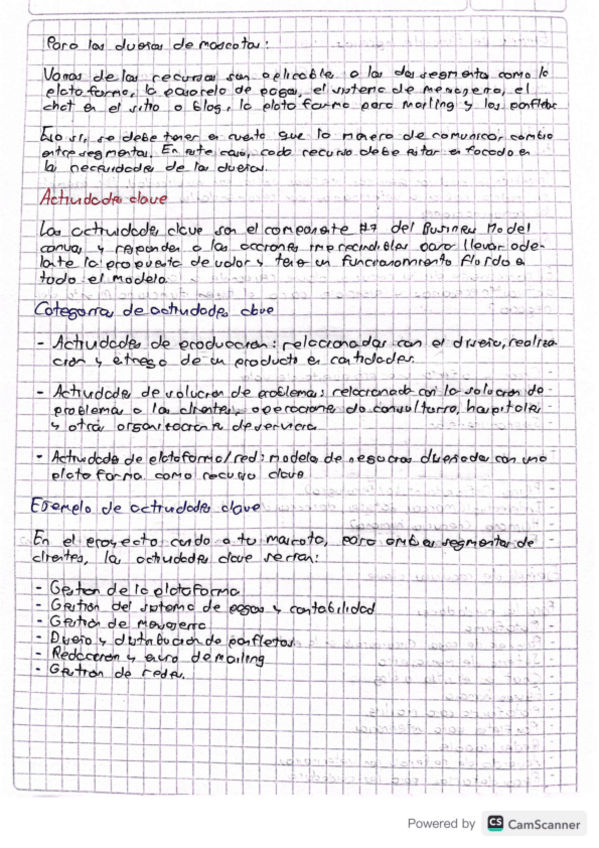 Para los dueños de mascotas:
Varios de los recursos son aplicables a los dos segmentos como la
plataforma, la pasarela de pagos, el sistema de mensajería, el
chat en el sitio o blog, la plataforma para mailing y los panfletos
Eso sí, se debe tener en cuenta que la manera de comunicar, cambia
entre segmentos. En este caso, cada recurso debe estar enfocado en
las necesidades de los dueños.
Actividades clave
Las actividades clave son el componente #7 del Business Model
canvas y responden a las acciones imprescindibles para llevar ade-
lante la propuesta de valor y tener un funcionamiento fluido en
todo el modelo.
Categorías de actividades clave
- Actividades de producción: relacionadas con el diseño, realiza
ción y entrega de un producto en cantidades.
- Actividades de solución de problemas: relacionada con la solución de
problemas a los clientes, operaciones de consultoría, hospitales
y otras organizaciones de servicios
- Actividades de plataforma/red: modelos de negocios diseñados con una
plataforma como recurso clave
Ejemplo de actividades clave
En el proyecto cuido a tu mascota, para ambos segmentos de
clientes, las actividades clave serían:
- Gestión de la plataforma
- Gestión del sistema de pagos y contabilidad
- Gestión de mensajería
- Diseño y distribución de panfletos
- Redacción y envío de mailing
- Gestión de redes.
Powered by CS CamScanner